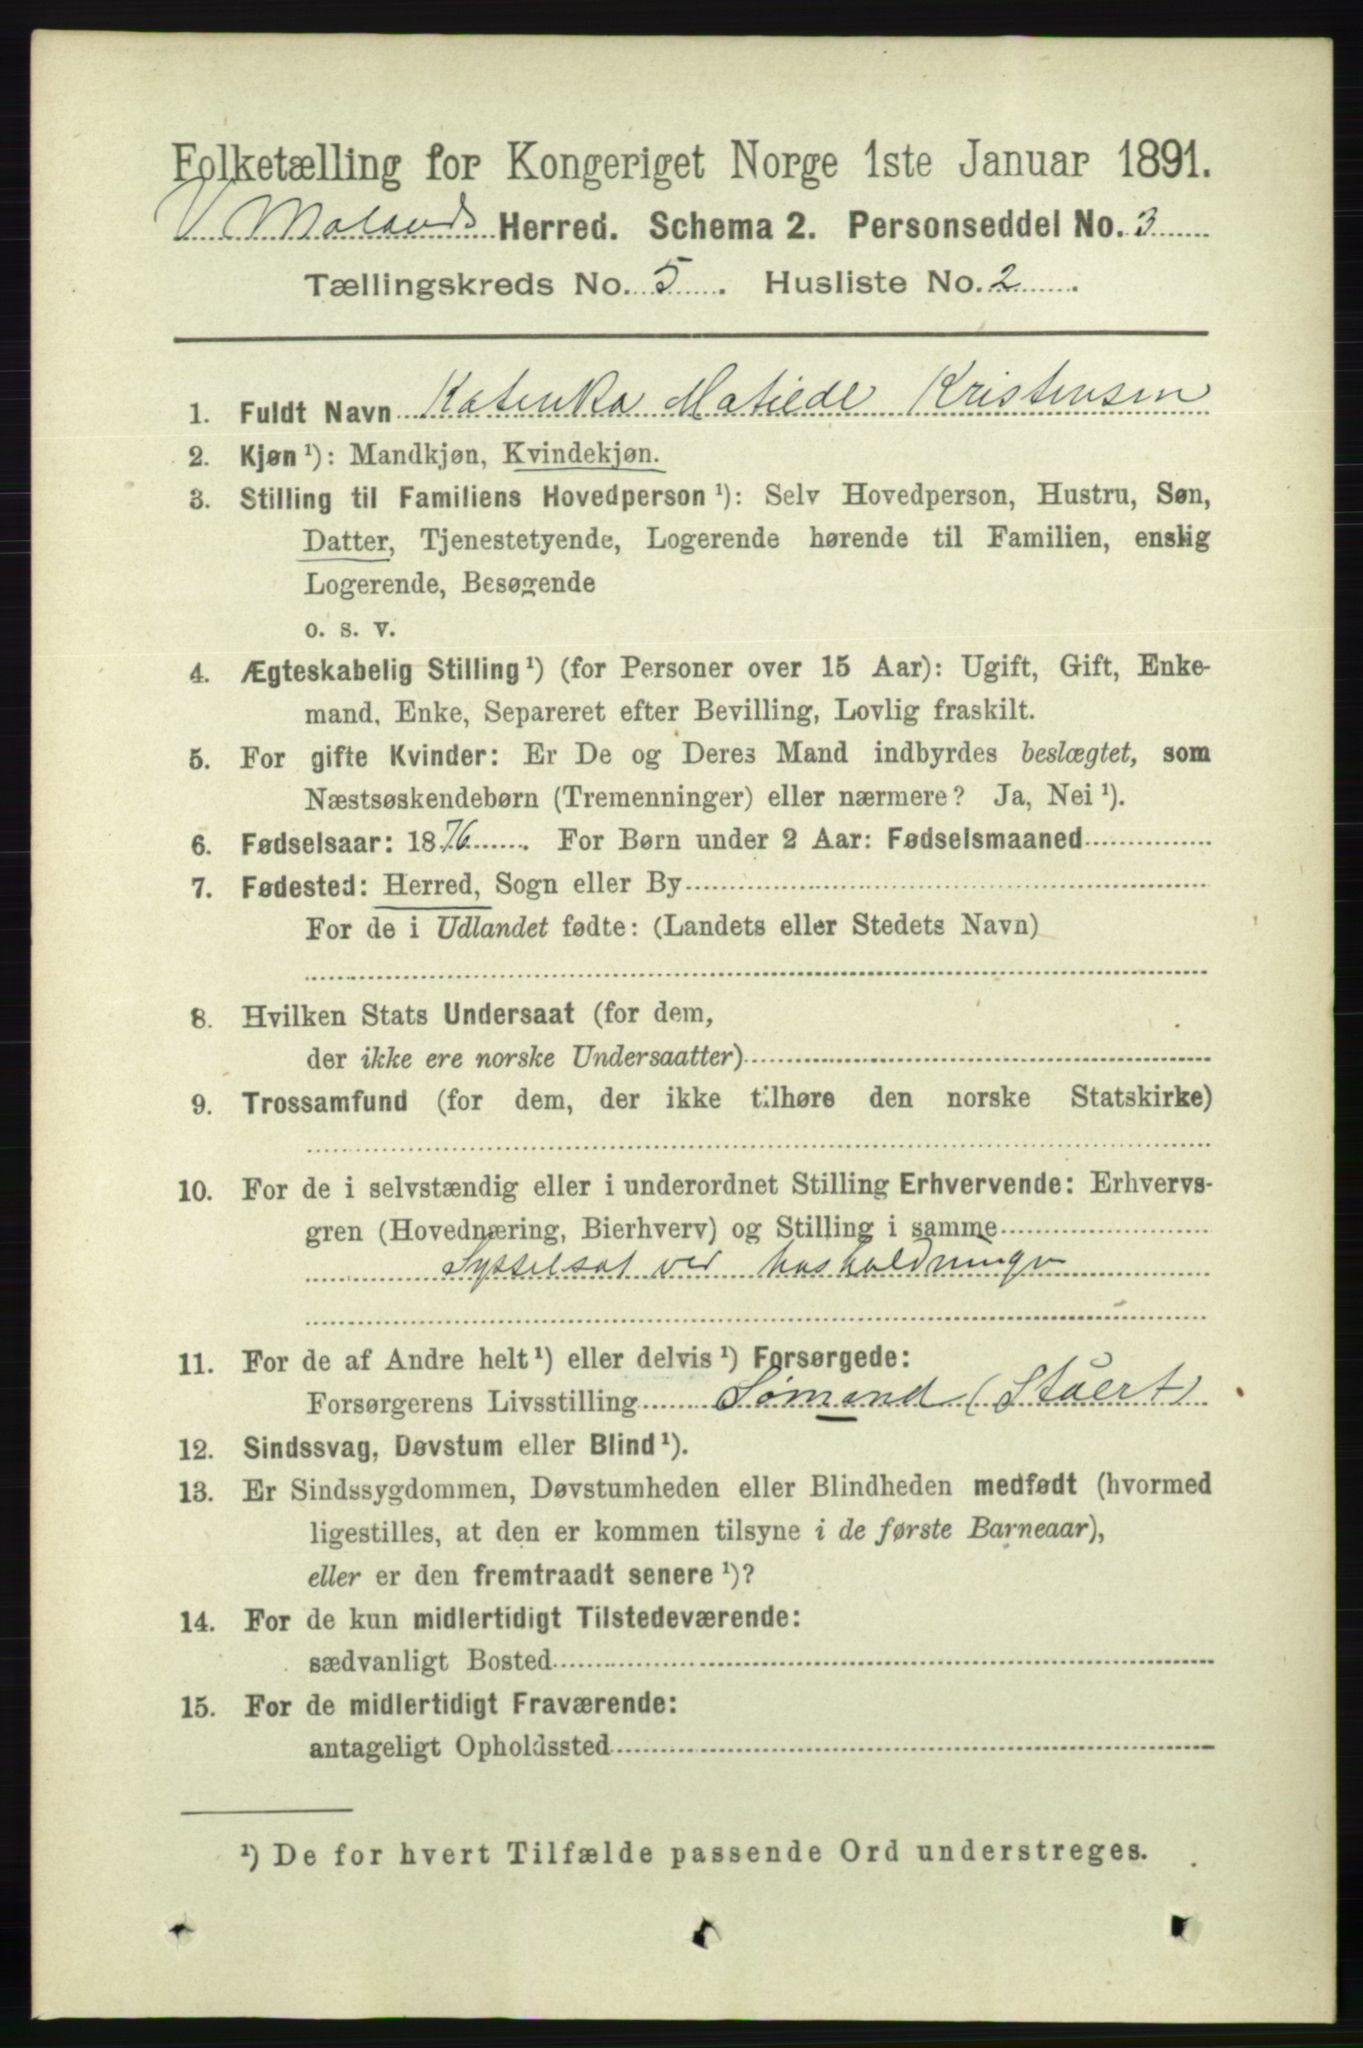 Folketælling for Kongeriget Norge 1ste Januar 1891.
V Molands Herred. Schema 2. Personseddel No. 3
Tællingskreds No. 5. Husliste No. 2.
1. Fuldt Navn Katinka Matilde Kristensen
2. Kjøn ¹): Mandkjøn, Kvindekjøn.
3. Stilling til Familiens Hovedperson ¹): Selv Hovedperson, Hustru, Søn,
Datter, Tjenestetyende, Logerende hørende til Familien, enslig
Logerende, Besøgende
o. s. v.
4. Ægteskabelig Stilling ¹) (for Personer over 15 Aar): Ugift, Gift, Enke-
mand, Enke, Separeret efter Bevilling, Lovlig fraskilt.
5. For gifte Kvinder: Er De og Deres Mand indbyrdes beslægtet, som
Næstsøskendebørn (Tremenninger) eller nærmere? Ja, Nei ¹).
6. Fødselsaar: 1876. For Børn under 2 Aar: Fødselsmaaned
7. Fødested: Herred, Sogn eller By
For de i Udlandet fødte: (Landets eller Stedets Navn)
8. Hvilken Stats Undersaat (for dem,
der ikke ere norske Undersaatter)
9. Trossamfund (for dem, der ikke tilhøre den norske Statskirke)
10. For de i selvstændig eller i underordnet Stilling Erhvervende: Erhvervs-
gren (Hovednæring, Bierhverv) og Stilling i samme
Sysselsat ved husholdningen
11. For de af Andre helt ¹) eller delvis ¹) Forsørgede:
Forsørgerens Livsstilling Sømand (Stuert)
12. Sindssvag, Døvstum eller Blind ¹).
13. Er Sindssygdommen, Døvstumheden eller Blindheden medfødt (hvormed
ligestilles, at den er kommen tilsyne i de første Barneaar),
eller er den fremtraadt senere ¹)?
14. For de kun midlertidigt Tilstedeværende:
sædvanligt Bosted
15. For de midlertidigt Fraværende:
antageligt Opholdssted
¹) De for hvert Tilfælde passende Ord understreges.